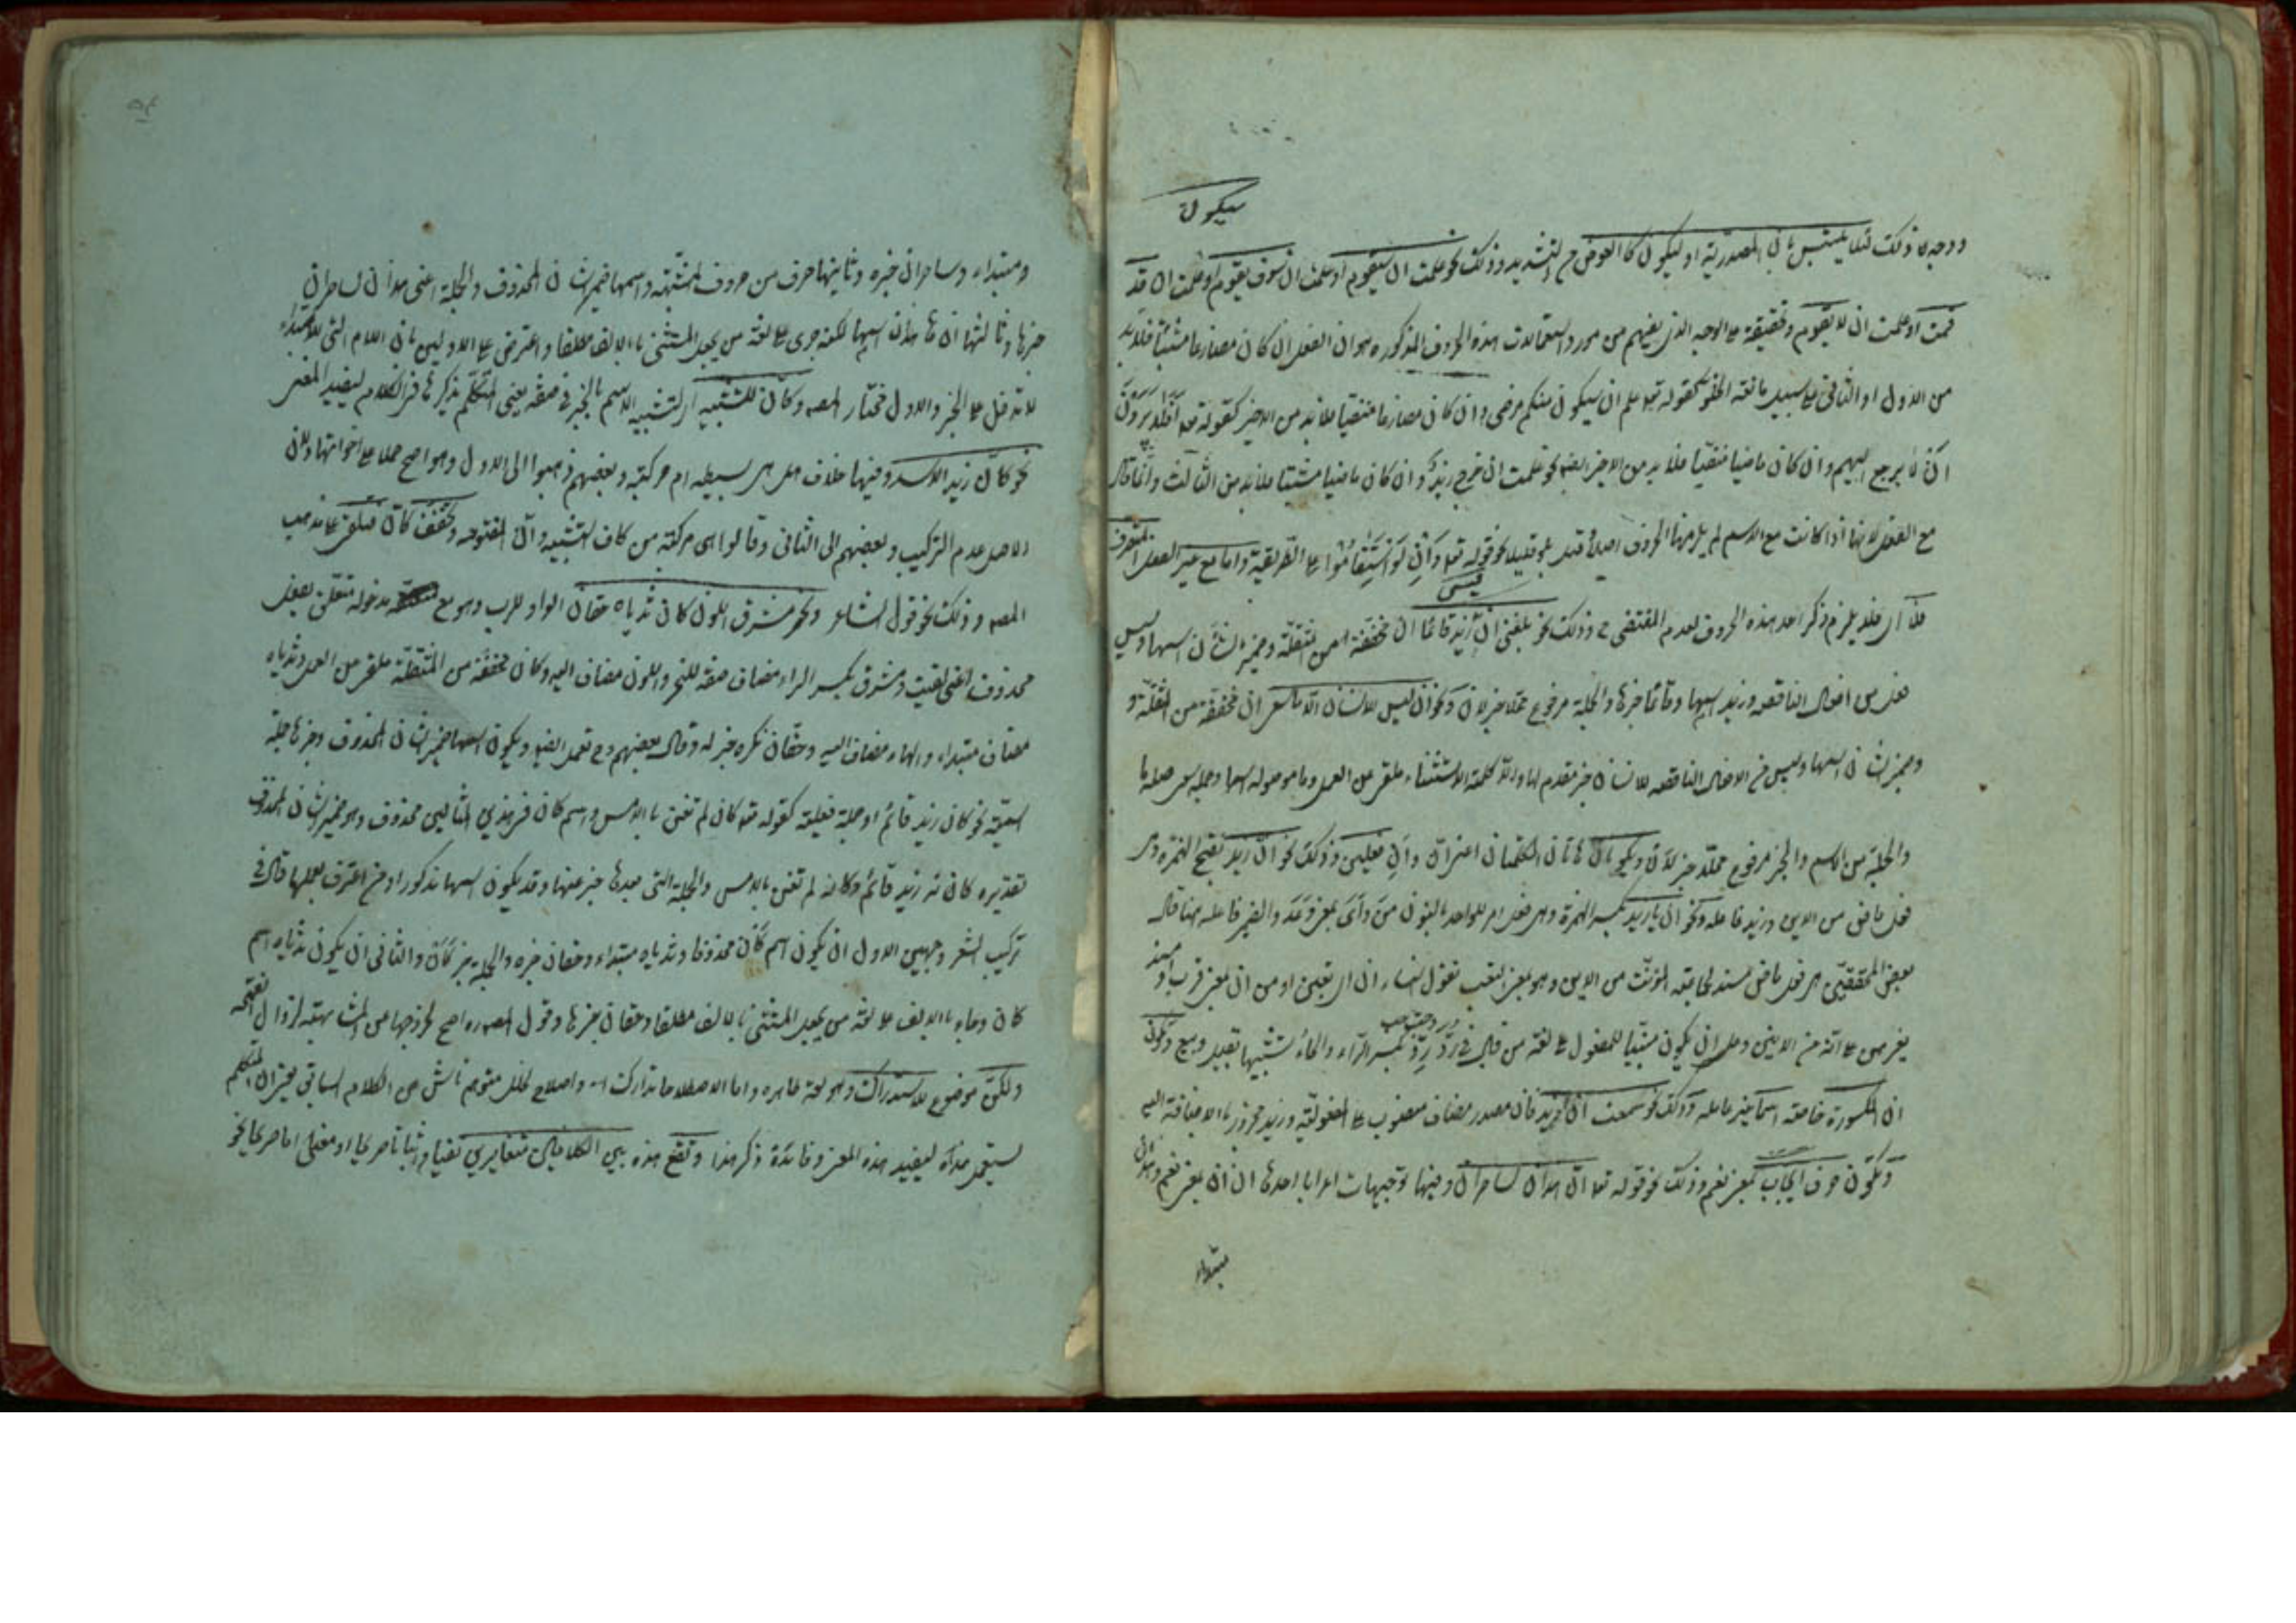 سيكون
ووجه ذلك لئلا يلتبس بان المصدرية او ليكون كالعوض من التشديد وذلك نحو علمت ان سيقوم او علمت ان سوف يقوم او علمت ان قد
قمت او علمت ان لا يقوم وتحقيقه على الوجه الذى يفهم من موارد استعمالات هذه الحروف المذكوره هو ان الفعل ان كان مضارعا مثبتا فلا بد
من الاول او الثانى على سبيل مانعة الخلو كقوله تع علم ان سيكون منكم مرضى وان كان مضارعا منفيا فلا بد من الاخير كقوله تع أفلا يرون
ان لا يرجع اليهم وان كان ماضيا منفيا فلا بد من الاخير ايضا نحو علمت ان خرج زيد وان كان ماضيا مثبتا فلا بد من الثالث وانما قال
مع الفعل لانها اذا كانت مع الاسم لم يلزمها الحروف اصلا نحو قوله تع وَأَنْ لَوِ اسْتَقامُوا على الطريقة واما مع غير الفعل المتصرف
فلا يلزم ذكر احد هذه الحروف لعدم المقتضى ح وذلك نحو بلغنى ان ليس زيد قائما ان مخففة من المثقلة وضمير الشان اسمها وليس
فعل من افعال الناقصه وزيد اسمها وقائما خبرها والجملة مرفوع محلا خبر لان ونحو ان ليس للانسان الا ما سعى ان مخففة من المثقلة و
ضمير الشان اسمها وليس من الافعال الناقصه للانسان خبر مقدم لها والا كلمة الاستثناء ملغى عن العمل وما موصوله اسمها وجمله سعى صله ما
والجملة من الاسم والخبر مرفوع محلا خبر لان ويكونان هاتان الكلمتان اعنى ان وأن فعلين وذلك نحو ان زيد بفتح الهمزه وهى
فعل ماض من الانين وزيد فاعله ونحو ان يا زيد بكسر الهمزة وهى فعل امر للواحد بالنون من وأى بمعنى وعد والضمير فاعله هنا قال
بعض المحققين هى فعل ماض مسند لجماعة المؤنث من الاين وهو بمعنى التعب تقول النساء ان اى تعبن او من ان بمعنى قرب او مسند
لغيرهن على انه من الانين وعلى ان يكون مبنيا للمفعول على لغة من قال فى رد رد بكسر الراء والحاء تشبيها بقيل وبيع وتكون
ان المكسورة خاصة اسما غير عامله وذلك نحو سمعت ان زيد فان مصدر مضاف منصوب على المفعولية وزيد مجرور بالاضافة اليه
وتكون حرف ايجاب بمعنى نعم وذلك نحو قوله تع ان هذان لساحران وفيها توجيهات احدها ان ان بمعنى نعم وهذان
مبتداء
ومبتداء وساحران خبره وثانيها حرف من حروف المشبهه واسمها ضمير الشان المحذوف والجملة اعنى هذان لساحران
خبرها وثالثها ان هذان اسمها لكنه جرى على لغة من يجعل المثنى بالالف مطلقا واعترض على الاولين بان اللام التى للابتداء
لا تدخل على الخبر والاول مختار المصـ وكأن للتشبيه اى لتشبيه الاسم بالخبر فى صفة يعنى المتكلم يذكرها فى الكلام ليفيد المعنى
نحو كأن زيد الاسد وفيها خلاف هل هى بسيطه ام مركبة وبعضهم ذهبوا الى الاول وهو اصح حملا على اخواتها ولان
الاصل عدم التركيب وبعضهم الى الثانى وقالوا هى مركبة من كاف التشبيه وان المفتوحه وتخفف كأن فتلغى على مذهب
المصـ وذلك نحو قول الشاعر ونحر مشرق اللون كان ثدياه حقان الواو للرب وهو مع مدخوله متعلق بفعل
محذوف اعنى لقيت ومشرق بكسر الراء مضاف صفة للنحر واللون مضاف اليه وكان مخففة من المثقلة ملغى عن العمل وثدياه
مضاف مبتداء والهاء مضاف اليه وحقان نكره خبر له وقال بعضهم وح تعمل ايضا ويكون اسمها ضمير الشان المحذوف وخبرها جملة
اسمية نحو كان زيد قائم او جملة فعلية كقوله تع كان لم تغن بالامس واسم كان فى هذين المثالين محذوف وهو ضمير الشان المحذوف
تقديره كانه زيد قائم وكانه لم تغن بالامس والجملة التى بعدها خبر عنها وقد يكون اسمها مذكورا ومن اعترف بعملها قال فى
تركيب الشعر وجهين الاول ان يكون اسم كأن محذوفا وثدياه مبتداء وحقان خبره والجملة خبر كأن والثانى ان يكون ثدياه اسم
كان وجاء بالالف على لغة من يجعل المثنى بالالف مطلقا وحقان خبرها وقول المصـ اصح لخروجها من المشابهة لزوال الفتحه
ولكن موضوع للاستدراك وهو لغة ظاهره واما الاصطلاحا تدارك واصلاح لخلل متوهم ناش من الكلام السابق يعنى ان المتكلم
يستعمل هذا ليفيد هذه المعنى وفائدة ذكر هذا وتقع هذه بين الكلامين متغايرين نفيا واثباتا صريحا او معنى اما صريحا نحو